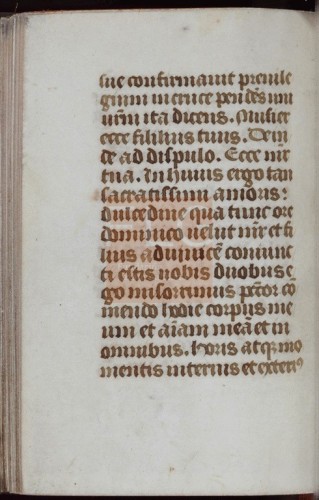 sue confirmauit preuile
gium in cruce pendẽs uni
uẽm ita dicens. Mulier
ecce filius tuus. Dein
de ad disipulo. Ecce mr̃
tua. In huius ergo tan
sacratissimi amoris:
dulcedine qua tunc ore
dominico velut mr̃ et fi
lius aduinicẽ coniunc
ti estis nobis duobus e
go miserrimus pctor cõ
mendo hodie corpus me
um et aĩam meã et in
omnibus. horis atque mo
mentis interius et exteriꝰ